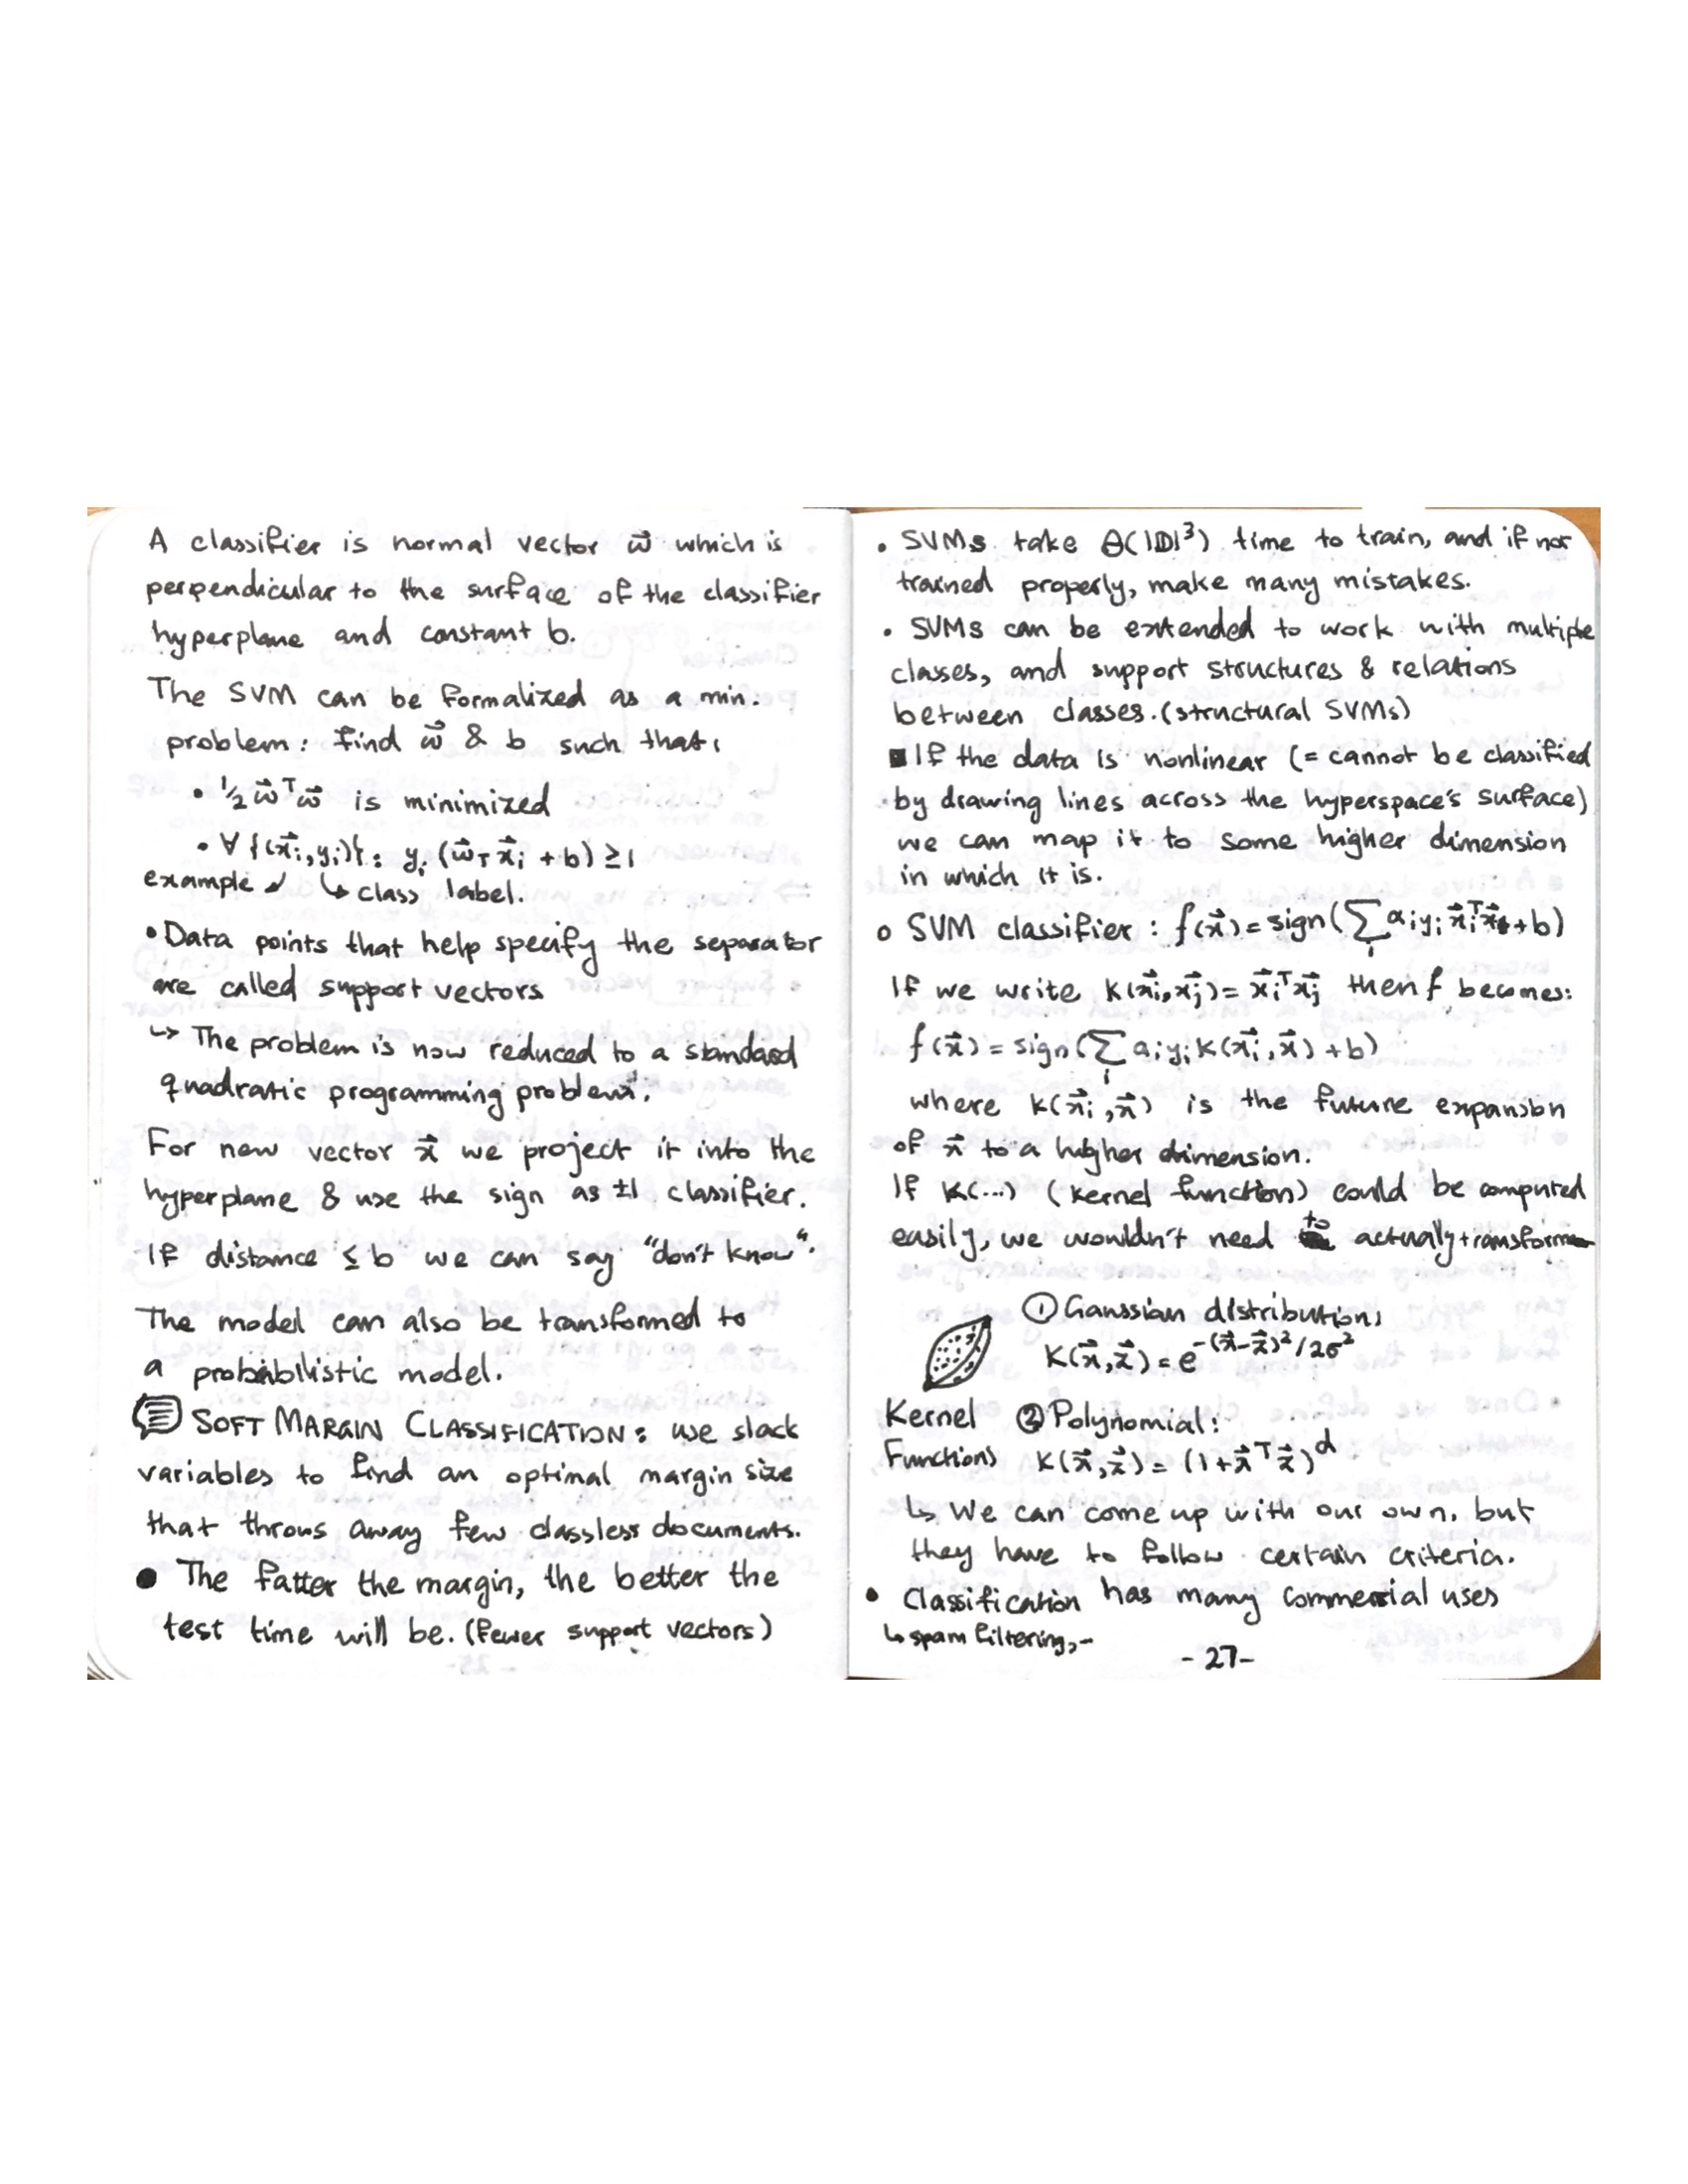 A classifier is normal vector w⃗ which is
perpendicular to the surface of the classifier
hyperplane and constant b.
The SVM can be formalized as a min.
problem: find w⃗ & b such that:
• ½ w⃗ᵀw⃗ is minimized
• ∀ {(x⃗ᵢ, yᵢ)} : yᵢ (w⃗ᵀ x⃗ᵢ + b) ≥ 1
example ↲ ↳ class label.
• Data points that help specify the separator
are called support vectors
↳ The problem is now reduced to a standard
quadratic programming problem.
For new vector x⃗ we project it into the
hyperplane & use the sign as ±1 classifier.
If distance ≤ b we can say "don't know".
The model can also be transformed to
a probabilistic model.
SOFT MARGIN CLASSIFICATION: use slack
variables to find an optimal margin size
that throws away few classless documents.
● The fatter the margin, the better the
test time will be. (Fewer support vectors)
• SVMs take θ(|D|³) time to train, and if not
trained properly, make many mistakes.
• SVMs can be extended to work with multiple
classes, and support structures & relations
between classes. (structural SVMs)
■ If the data is nonlinear (= cannot be classified
by drawing lines across the hyperspace's surface)
we can map it to some higher dimension
in which it is.
o SVM classifier : f(x⃗) = sign(∑ᵢ aᵢyᵢ x⃗ᵢᵀx⃗ + b)
If we write K(x⃗ᵢ, x⃗ⱼ) = x⃗ᵢᵀx⃗ⱼ then f becomes:
f(x⃗) = sign(∑ᵢ aᵢyᵢ K(x⃗ᵢ, x⃗) + b)
where K(x⃗ᵢ, x⃗) is the future expansion
of x⃗ to a higher dimension.
If K(...) (kernel function) could be computed
easily, we wouldn't need to actually transform
① Gaussian distribution:
K(x⃗, z⃗) = e^-(x⃗-z⃗)²/2σ²
Kernel ② Polynomial:
Functions K(x⃗, z⃗) = (1 + x⃗ᵀ z⃗)^d
↳ We can come up with our own, but
they have to follow certain criteria.
• Classification has many commercial uses
↳ spam filtering, -
- 27 -